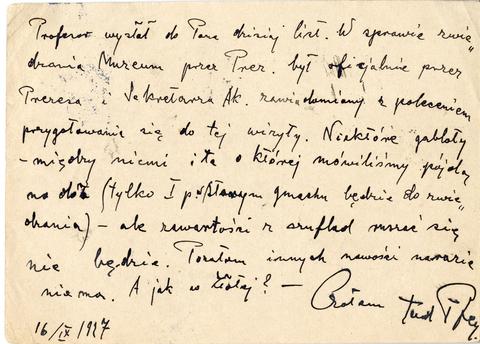 Profesor wysłał do Pana dzisiaj list. W sprawie zwie„
dzania Muzeum przez Prez. był oficjalnie przez
Prezesa i Sekretarza Ak. zawiadomiony z poleceniem
przygotowania się do tej wizyty. Niektóre gabloty
– między niemi i ta o której mówiliśmy pójdą
na dół (tylko I p. starym gmachu będzie do zwie„
dzania) – ale zawartości z szuflad ruszać się
nie będzie. Poza tem innych nowości narazie
niema. A jak w Złotej? –
16/IX 1927